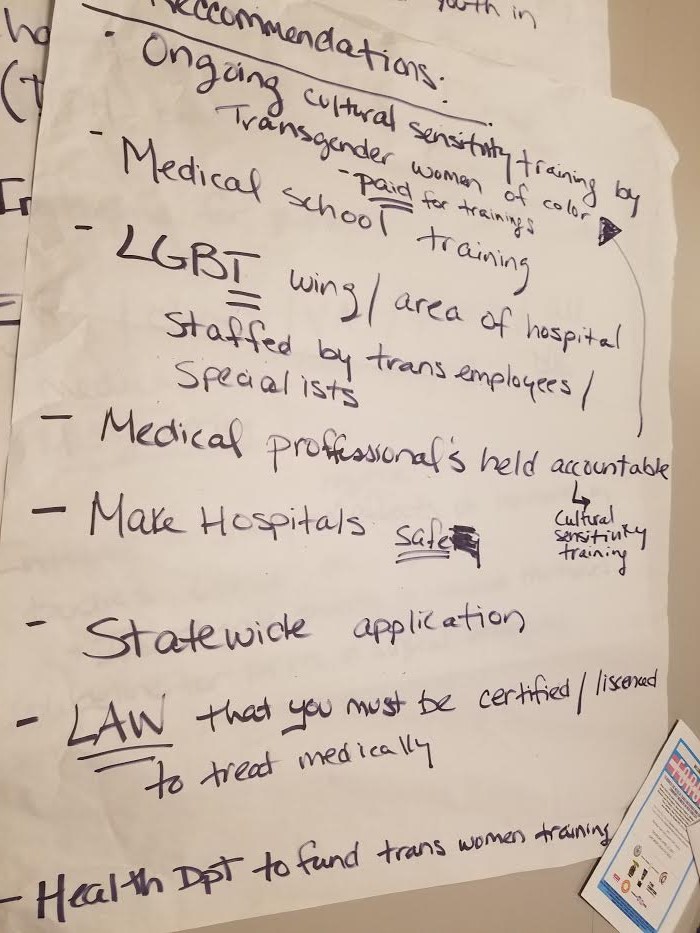 youth in
ho
Reccommendations:
- Ongoing cultural sensitivity training by
Transgender women of color
- paid for trainings
- Medical school training
- LGBT wing / area of hospital
Staffed by trans employees /
Specialists
- Medical proffessional's held accountable
↳ Cultural
sensitivity
training
- Make Hospitals safe
- Statewide application
- LAW that you must be certified / liscensed
to treat medically
- Health Dpt to fund trans women training